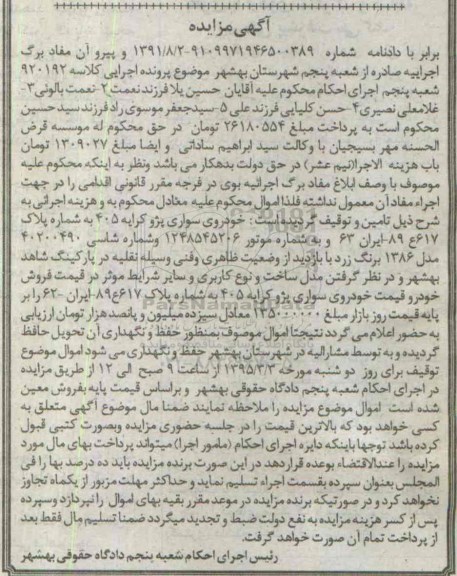 آگهی مزایده
برابر با دادنامه شماره ۹۱۰۹۹۷۱۹۴۶۵۰۰۳۸۹-۱۳۹۱/۸/۲ و پیرو آن مفاد برگ
اجراییه صادره از شعبه پنجم شهرستان بهشهر موضوع پرونده اجرایی کلاسه ۹۲۰۱۹۲
شعبه پنجم اجرای احکام محکوم علیه آقایان حسین یلا فرزند نعمت ۲-نعمت بالونی ۳-
غلامعلی نصیری ۴-حسن کلبایی فرزند علی ۵-سیدجعفر موسوی راد فرزند سید حسین
محکوم است به پرداخت مبلغ ۲۶۱۸۰۵۵۴ تومان در حق محکوم له موسسه قرض
الحسنه مهر بسیجیان با وکالت سید ابراهیم ساداتی و ایضا مبلغ ۱۳۰۹۰۲۷ تومان
باب هزینه الاجرا(نیم عشر) در حق دولت بدهکار می باشد ونظر به اینکه محکوم علیه
موصوف با وصف ابلاغ مفاد برگ اجرائیه بوی در فرجه مقرر قانونی اقدامی را در جهت
اجراء مفاد آن معمول نداشته فلذا اموال محکوم علیه معادل محکوم به و هزینه اجرائی به
شرح ذیل تامین و توقیف گردیده است: خودروی سواری پژو کرایه ۴۰۵ به شماره پلاک
۶۱۷ع ۸۹-ایران ۶۳ و به شماره موتور ۱۲۴۸۵۴۵۲۰۶ وشماره شاسی ۴۰۲۰۰۴۹۰
مدل ۱۳۸۶ برنگ زرد با بازدید از وضعیت ظاهری وفنی وسیله نقلیه در پارکینگ شاهد
بهشهر و در نظر گرفتن مدل ساخت و نوع کاربری و سایر شرایط موثر در قیمت فروش
خودرو قیمت خودروی سواری پژو کرایه ۴۰۵ به شماره پلاک ۶۱۷ع۸۹-ایران -۶۲ را بر
پایه قیمت روز بازار مبلغ ۱۳۵۰۰۰۰۰۰ معادل سیزده میلیون و پانصد هزار تومان ارزیابی
به حضور اعلام می گردد نتیجتا اموال موصوف بمنظور حفظ و نگهداری آن تحویل حافظ
گردیده و به توسط مشارالیه در شهرستان بهشهر حفظ و نگهداری می شود اموال موضوع
توقیف برای روز دو شنبه مورخه ۱۳۹۵/۳/۳ از ساعت ۹ صبح الی ۱۲ از طریق مزایده
در اجرای احکام شعبه پنجم دادگاه حقوقی بهشهر و براساس قیمت پایه بفروش معین
شده است اموال موضوع مزایده را ملاحظه نمایند ضمنا مال موضوع آگهی متعلق به
کسی خواهد بود که بالاترین قیمت را در جلسه حضوری مزایده وبصورت کتبی قبول
کرده باشد توجها باینکه دایره اجرای احکام (مامور اجرا) میتواند پرداخت بهای مال مورد
مزایده را عندالاقتضاء بوعده قرار دهد در این صورت برنده مزایده باید ده درصد بها را فی
المجلس بعنوان سپرده بقسمت اجراء تسلیم نماید و حداکثر مهلت مزبور از یکماه تجاوز
نخواهد کرد و در صورتیکه برنده مزایده در موعد مقرر بقیه بهای اموال را نپردازد وسپرده
پس از کسر هزینه مزایده به نفع دولت ضبط و تجدید میگردد ضمنا تسلیم مال فقط بعد
از پرداخت تمام آن صورت خواهد گرفت.
رئیس اجرای احکام شعبه پنجم دادگاه حقوقی بهشهر